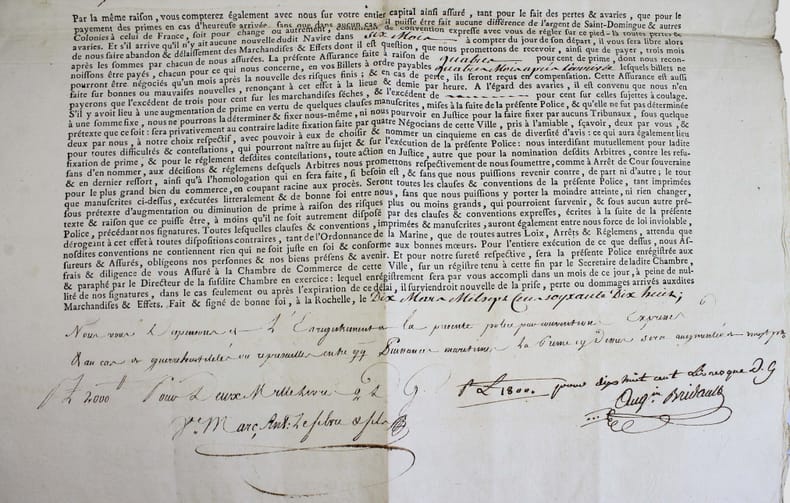 Par la même raison, vous compterez également avec nous sur votre entier capital ainsi assuré, tant pour le fait des pertes & avaries, que pour le
payement des primes en cas d'heureuse arrivée, sans que dans aucun cas, il puisse être fait aucune différence de l'argent de Saint-Domingue & autres
Colonies à celui de France, soit pour change ou autrement, convention expresse avec vous de régler sur ce pied-là toutes pertes &
avaries. Et s'il arrive qu'il n'y ait aucune nouvelle dudit Navire dans Six Mois à compter du jour de son départ, il vous sera libre alors
de nous faire abandon & délaissement des Marchandises & Effets dont il est question, que nous promettons de recevoir, ainsi que de payer, trois mois
après les sommes par chacun de nous assurées. La présente Assurance faite à raison de quatre pour cent de prime, dont nous recon-
noissons être payés, chacun pour ce qui nous concerne, en vos Billets à ordre payables lesquels billets ne
pourront être négociés qu'un mois après la nouvelle des risques finis ; & en cas de perte, ils seront reçus en compensation. Cette Assurance est aussi
faite sur bonnes ou mauvaises nouvelles, renonçant à cet effet à la lieue & demie par heure. A l'égard des avaries, il est convenu que nous n'en
payerons que l'excédent de trois pour cent sur les marchandises sèches, & l'excédent de pour cent sur celles sujettes à coulage.
S'il y avoit lieu à une augmentation de prime en vertu de quelques clauses manuscrites, mises à la suite de la présente Police, & qu'elle ne fut pas déterminée
à une somme fixe, nous ne pourrons la déterminer & fixer nous-même, ni nous pourvoir en Justice pour la faire fixer par aucuns Tribunaux, sous quelque
prétexte que ce soit : sera privativement au contraire ladite fixation faite par quatre Négocians de cette Ville, pris à l'amiable, sçavoir, deux par vous, &
deux par nous, à notre choix respectif, avec pouvoir à eux de choisir & nommer un cinquième en cas de diversité d'avis : ce qui aura également lieu
pour toutes difficultés & contestations, qui pourront naître au sujet & sur l'exécution de la présente Police : nous interdisant mutuellement pour ladite
fixation de prime, & pour le réglement desdites contestations, toute action en Justice, autre que pour la nomination desdits Arbitres, contre les refu-
sans d'en nommer, aux décisions & réglemens desquels Arbitres nous promettons respectivement de nous soumettre, comme à Arrêt de Cour souveraine
& en dernier ressort, ainsi qu'à l'homologation qui en sera faite, si besoin est, & sans que nous puissions revenir contre, de part ni d'autre ; le tout
pour le plus grand bien du commerce, en coupant racine aux procès. Seront toutes les clauses & conventions de la présente Police, tant imprimées
que manuscrites ci-dessus, exécutées litteralement & de bonne foi entre nous, sans que nous puissions y porter la moindre atteinte, ni rien changer,
sous prétexte d'augmentation ou diminution de prime à raison des risques plus ou moins grands, qui pourroient survenir, & sous aucun autre pré-
texte & raison que ce puisse être, à moins qu'il ne soit autrement disposé par des clauses & conventions expresses, écrites à la suite de la présente
Police, précédant nos signatures. Toutes lesquelles clauses & conventions, imprimées & manuscrites, auront également entre nous force de loi inviolable,
dérogeant à cet effet à toutes dispositions contraires, tant de l'Ordonnance de la Marine, que de toutes autres Loix, Arrêts & Réglemens, attendu que
nosdites conventions ne contiennent rien qui ne soit juste en foi & conforme aux bonnes mœurs. Pour l'entiere exécution de ce que dessus, nous As-
sureurs & Assurés, obligeons nos personnes & nos biens présens & avenir. Et pour notre sureté respective, sera la présente Police enrégistrée aux
frais & diligence de vous Assuré à la Chambre de Commerce de cette Ville, sur un régistre tenu à cette fin par le Secretaire de ladite Chambre,
& paraphé par le Directeur de la susdite Chambre en exercice : lequel enrégistrement sera par vous accompli dans un mois de ce jour, à peine de nul-
lité de nos signatures, dans le cas seulement où après l'expiration de ce délai, il surviendroit nouvelle de la prise, perte ou dommages arrivés auxdites
Marchandises & Effets. Fait & signé de bonne foi, à la Rochelle, le Dix Mars Mil sept Cen soixante Dix huit ;
Nous vous Dispensons de L'Enregistrement de la presente police par convention Expresse
& au cas de guerre hostilités ou represailles entre qq Puissance maritime La Prime cy Dessus sera augmentée de vingt
£ 2000 Pour Deux Mille Livre
£ 1800. pour dix huit cent Livres
Vᵉ Marc Ant. Lefebvre & fils
Augᶦⁿ Bridault